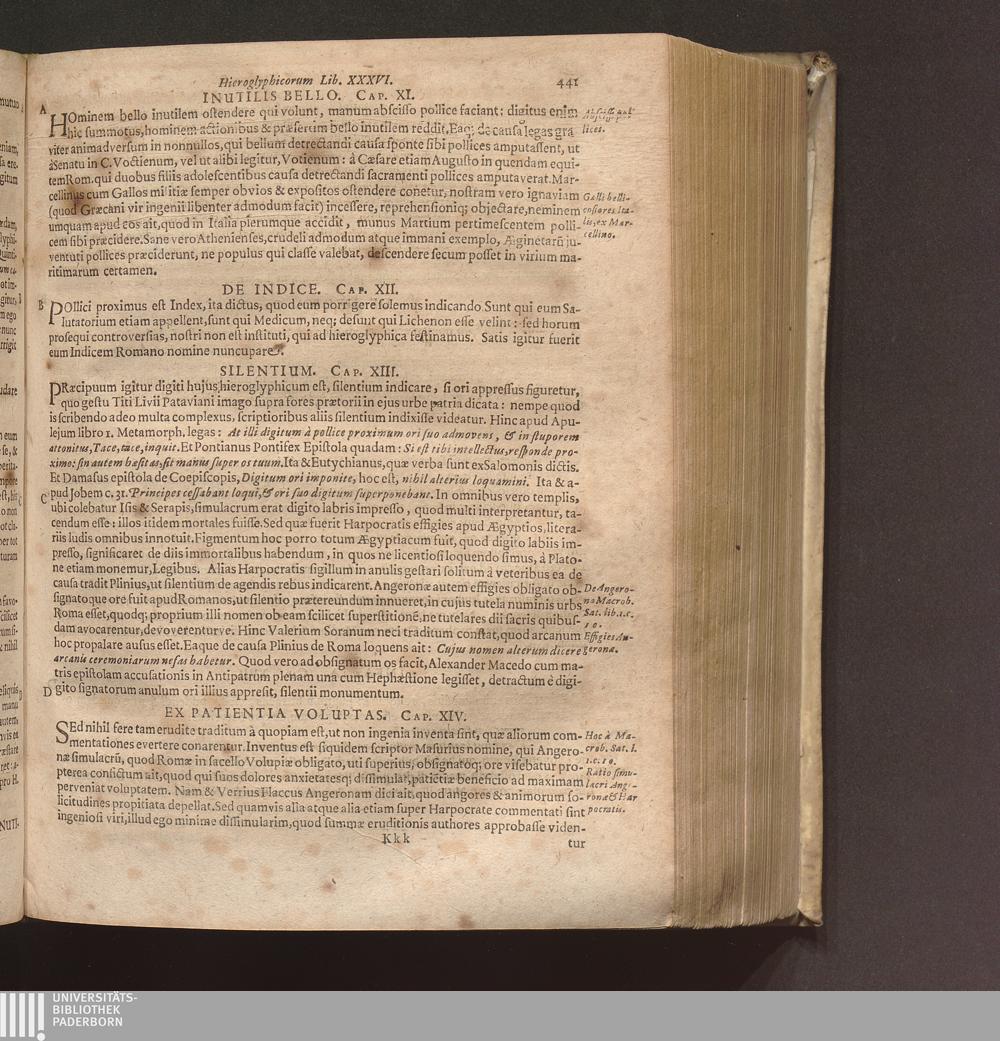 Hieroglyphicorum Lib. XXXVI. 441
INUTILIS BELLO. CAP. XI.
A HOminem bello inutilem ostendere qui volunt, manum abscisso pollice faciant: digitus enim
hic summotus, hominem actionibus & præsertim bello inutilem reddit. Eaq; de causa legas gra
viter animadversum in nonnullos, qui bellum detrectandi causa sponte sibi pollices amputassent, ut
à Senatu in C. Voctienum, vel ut alibi legitur, Votienum: à Cæsare etiam Augusto in quendam equi-
tem Rom. qui duobus filiis adolescentibus causa detrectandi sacramenti pollices amputaverat. Mar-
cellinus cum Gallos militiæ semper obvios & expositos ostendere conetur, nostram vero ignaviam
(quod Græcani vir ingenii libenter admodum facit) incessere, reprehensioniq; objectare, neminem
umquam apud eos ait, quod in Italia plerumque accidit, munus Martium pertimescentem polli-
cem sibi præcidere. Sane vero Athenienses, crudeli admodum atque immani exemplo, Æginetarū ju-
ventuti pollices præciderunt, ne populus qui classe valebat, descendere secum posset in virium ma-
ritimarum certamen.
lices.
Galli belli-
cosiores Ita-
lis, ex Mar-
cellino.
DE INDICE. CAP. XII.
B POllici proximus est Index, ita dictus, quod eum porrigere solemus indicando. Sunt qui eum Sa-
lutatorium etiam appellent, sunt qui Medicum, neq; desunt qui Lichenon esse velint: sed horum
prosequi controversias, nostri non est instituti, qui ad hieroglyphica festinamus. Satis igitur fuerit
eum Indicem Romano nomine nuncupare.
SILENTIUM. CAP. XIII.
PRæcipuum igitur digiti hujus hieroglyphicum est, silentium indicare, si ori appressus figuretur,
quo gestu Titi Livii Pataviani imago supra fores prætorii in ejus urbe patria dicata: nempe quod
is scribendo adeo multa complexus, scriptioribus aliis silentium indixisse videatur. Hinc apud Apu-
lejum libro 1. Metamorph. legas: At illi digitum à pollice proximum ori suo admovens, & in stuporem
attonitus, Tace, tace, inquit. Et Pontianus Pontifex Epistola quadam: Si est tibi intellectus, responde pro-
ximo: sin autem hæsitas, sit manus super os tuum. Ita & Eutychianus, quæ verba sunt ex Salomonis dictis.
Et Damasus epistola de Coepiscopis, Digitum ori imponite, hoc est, nihil alterius loquamini. Ita & a-
C pud Jobem c. 31. Principes cessabant loqui, & ori suo digitum superponebant. In omnibus vero templis,
ubi colebatur Isis & Serapis, simulacrum erat digito labris impresso, quod multi interpretantur, ta-
cendum esse: illos itidem mortales fuisse. Sed quæ fuerit Harpocratis effigies apud Ægyptios, litera-
riis ludis omnibus innotuit. Figmentum hoc porro totum Ægyptiacum fuit, quod digito labiis im-
presso, significaret de diis immortalibus habendum, in quos ne licentiosi loquendo simus, à Plato-
ne etiam monemur, Legibus. Alias Harpocratis sigillum in anulis gestari solitum à veteribus ea de
causa tradit Plinius, ut silentium de agendis rebus indicarent. Angeronæ autem effigies obligato ob-
signatoque ore fuit apud Romanos, ut silentio prætereundum innueret, in cujus tutela numinis urbs
Roma esset, quodq; proprium illi nomen ob eam scilicet superstitionē, ne tutelares dii sacris quibus-
dam avocarentur, devoverenturve. Hinc Valerium Soranum neci traditum constat, quod arcanum
hoc propalare ausus esset. Eaque de causa Plinius de Roma loquens ait: Cujus nomen alterum dicere
arcanis ceremoniarum nefas habetur. Quod vero ad obsignatum os facit, Alexander Macedo cum ma-
tris epistolam accusationis in Antipatrum plenam una cum Hephæstione legisset, detractum è digi-
D gito signatorum anulum ori illius appresit, silentii monumentum.
De Angero-
na Macrob.
Sat. lib. 1. c.
10.
Effigies An-
geronæ.
EX PATIENTIA VOLUPTAS. CAP. XIV.
SEd nihil fere tam erudite traditum à quopiam est, ut non ingenia inventa sint, quæ aliorum com-
mentationes evertere conarentur. Inventus est siquidem scriptor Masurius nomine, qui Angero-
næ simulacrū, quod Romæ in sacello Volupiæ obligato, uti superius, obsignatoq; ore visebatur pro-
pterea confictum ait, quod qui suos dolores anxietatesq; dissimulat, patiētiæ beneficio ad maximam
perveniat voluptatem. Nam & Verrius Flaccus Angeronam dici ait, quod angores & animorum so-
licitudines propitiata depellat. Sed quamvis alia atque alia etiam super Harpocrate commentati sint
ingeniosi viri, illud ego minime dissimularim, quod summæ eruditionis authores approbasse viden-
Hoc à Ma-
crob. Sat. l.
1. c. 10.
Ratio simu-
lacri Ange-
ronæ & Har
pocratis.
Kkk tur
UNIVERSITÄTS-
BIBLIOTHEK
PADERBORN